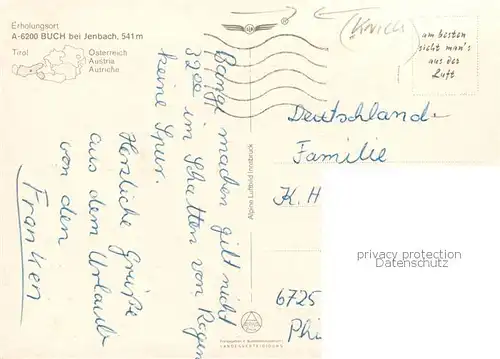 Erholungsort
A-6200 BUCH bei Jenbach, 541m
Tirol
Österreich
Austria
Autriche
am besten
sieht man's
aus der
Luft
Bangt machen gilt nicht
32°° im Schatten von Regen
keine Spur.
Herzliche Grüße
aus dem Urlaub
von den
Franken
Alpine Luftbild Innsbruck
Deutschland
Familie
K. H
6725
Phi
privacy protection
Datenschutz